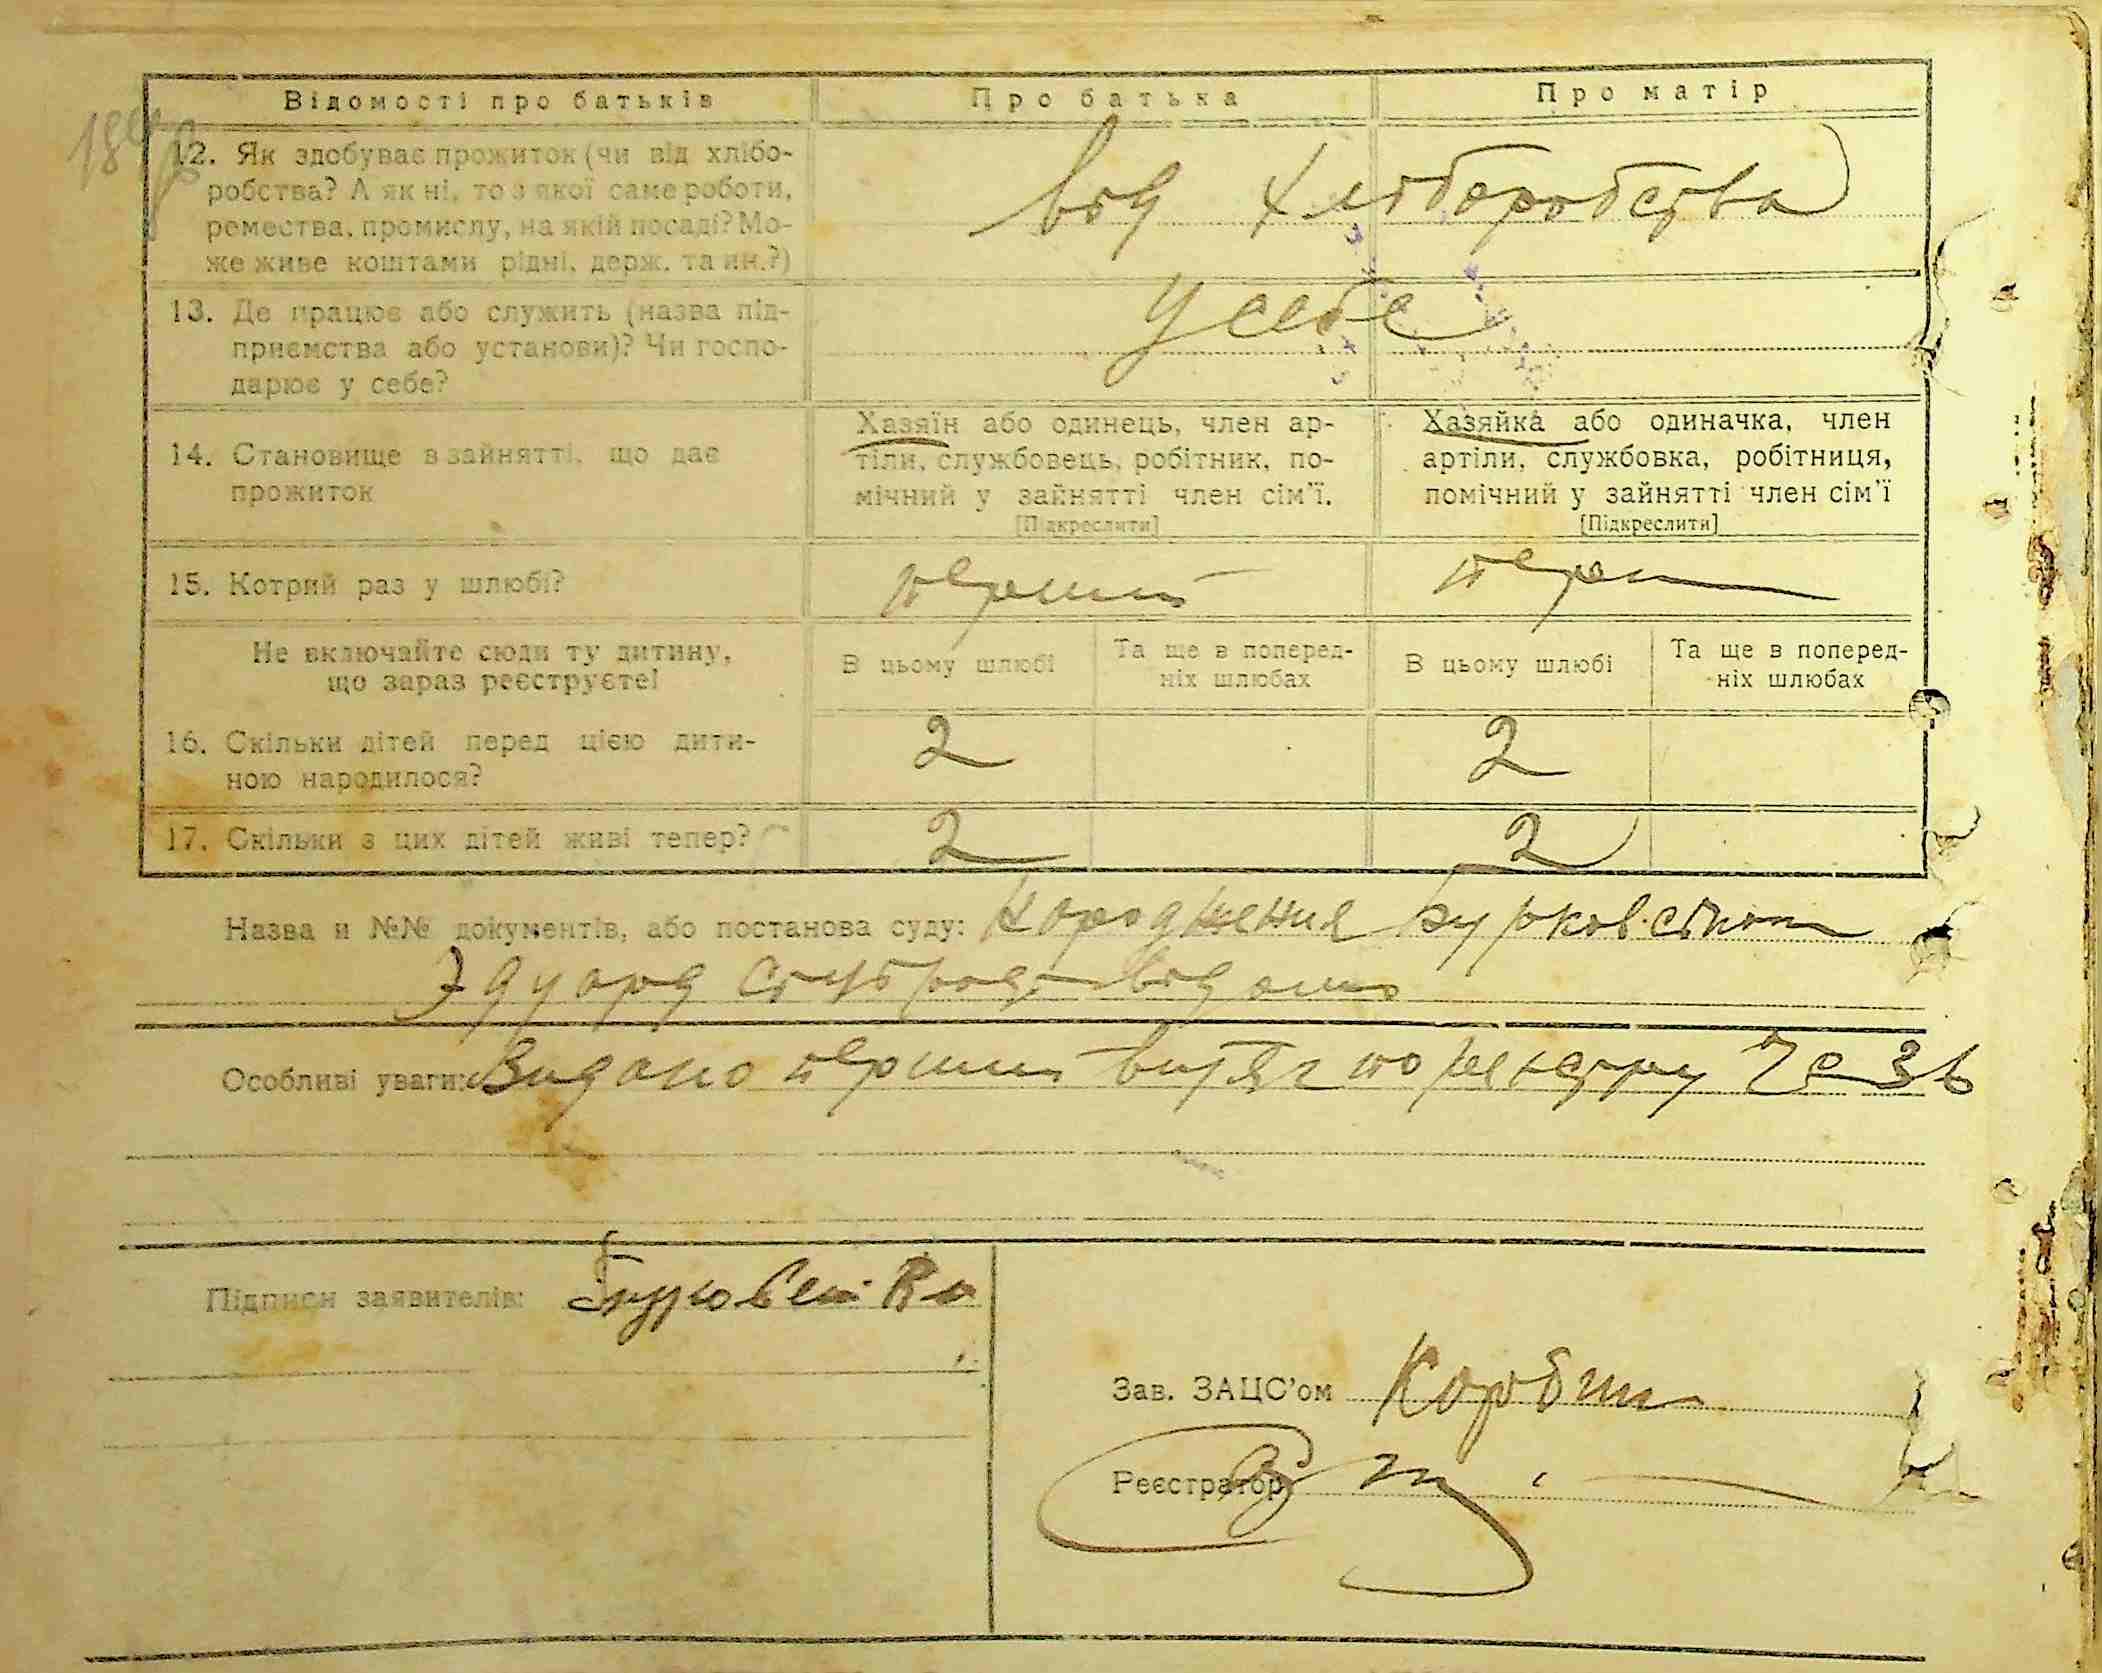 Відомості про батьків Про батька Про матір
12. Як здобуває прожиток (чи від хлібо-
робства? А як ні, то з якої саме роботи,
ремества, промислу, на якій посаді? Мо-
же живе коштами рідні, держ. та ин.?)
від хліборобства
13. Де працює або служить (назва під-
приємства або установи)? Чи госпо-
дарює у себе?
у себе
14. Становище в зайнятті, що дає
прожиток
Хазяїн або одинець, член ар-
тіли, службовець, робітник, по-
мічний у зайнятті член сім'ї.
[Підкреслити]
Хазяйка або одиначка, член
артіли, службовка, робітниця,
помічний у зайнятті член сім'ї
[Підкреслити]
15. Котрий раз у шлюбі? перший перш
Не включайте сюди ту дитину,
що зараз реєструєте!
В цьому шлюбі
Та ще в поперед-
ніх шлюбах
В цьому шлюбі
Та ще в поперед-
ніх шлюбах
16. Скільки дітей перед цією дити-
ною народилося?
2 2
17. Скільки з цих дітей живі тепер? 2 2
Назва й №№ документів, або постанова суду: народження
Едуард
Особливі уваги: Видано перший витяг по реєстру
Підписи заявителів:
Зав. ЗАЦС'ом
Реєстратор